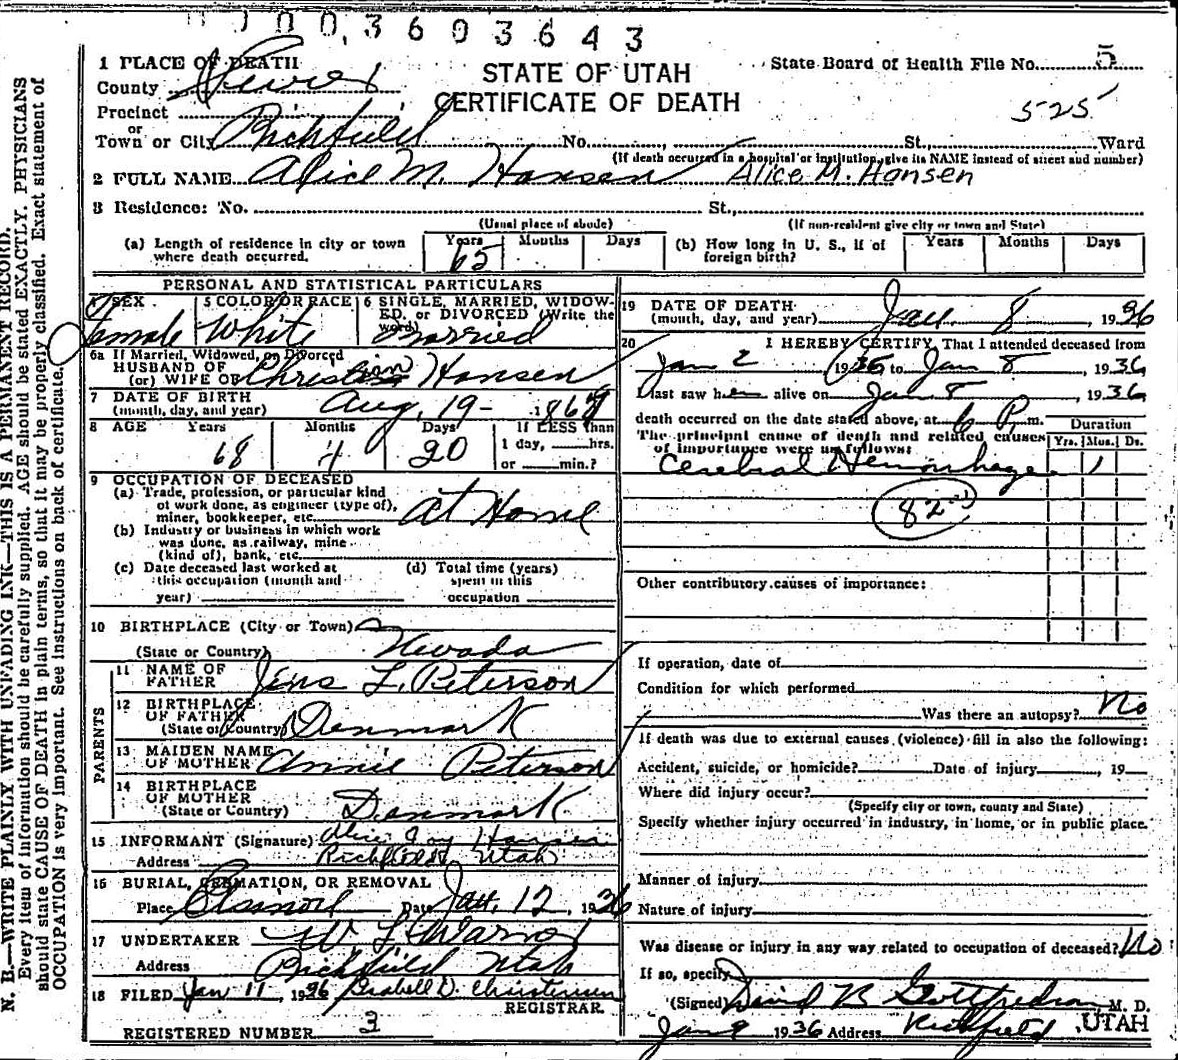 0003603643
1 PLACE OF DEATH
County Sevier
STATE OF UTAH
CERTIFICATE OF DEATH
State Board of Health File No. 5
525
Precinct
or
Town or City Richfield No. , St., Ward
(If death occurred in a hospital or institution, give its NAME instead of street and number)
2 FULL NAME Alice M. Hansen Alice M. Hansen
3 Residence: No. St.,
(Usual place of abode) (If non-resident give city or town and State)
(a) Length of residence in city or town where death occurred. Years 65 Months Days
(b) How long in U. S., if of foreign birth? Years Months Days
PERSONAL AND STATISTICAL PARTICULARS
4 SEX Female
5 COLOR OR RACE White
6 SINGLE, MARRIED, WIDOWED, or DIVORCED (Write the word) Married
6a If Married, Widowed, or Divorced
HUSBAND OF
(or) WIFE OF Christian Hansen
7 DATE OF BIRTH
(month, day, and year) Aug. 19 - 1867
8 AGE Years 68 Months 4 Days 20 If LESS than 1 day, hrs. or min.?
9 OCCUPATION OF DECEASED
(a) Trade, profession, or particular kind
of work done, as engineer (type of),
miner, bookkeeper, etc. At Home
(b) Industry or business in which work
was done, as railway, mine
(kind of), bank, etc.
(c) Date deceased last worked at
this occupation (month and
year)
(d) Total time (years)
spent in this
occupation
10 BIRTHPLACE (City or Town)
(State or Country) Nevada
PARENTS
11 NAME OF
FATHER Jens L. Peterson
12 BIRTHPLACE
OF FATHER
(State or Country) Denmark
13 MAIDEN NAME
OF MOTHER Annie Peterson
14 BIRTHPLACE
OF MOTHER
(State or Country) Denmark
15 INFORMANT (Signature) Alice Joy Hansen
Address Richfield Utah
16 BURIAL, CREMATION, OR REMOVAL
Place Elsinore Date Jan. 12, 1936
17 UNDERTAKER
Address Richfield Utah
18 FILED Jan 11, 1936 Isabell D. Christensen
REGISTRAR.
REGISTERED NUMBER 3
19 DATE OF DEATH
(month, day, and year) Jan. 8, 1936
20 I HEREBY CERTIFY, That I attended deceased from
Jan 2 1936 to Jan 8, 1936
I last saw her alive on Jan 8, 1936
death occurred on the date stated above, at 6 P. m.
The principal cause of death and related causes
of importance were as follows:
Duration
Yrs. Mos. Ds.
Cerebral Hemorrhage 1
82
Other contributory causes of importance:
If operation, date of
Condition for which performed
Was there an autopsy? No
If death was due to external causes (violence) fill in also the following:
Accident, suicide, or homicide? Date of injury , 19
Where did injury occur?
(Specify city or town, county and State)
Specify whether injury occurred in industry, in home, or in public place.
Manner of injury
Nature of injury
Was disease or injury in any way related to occupation of deceased? No
If so, specify
(Signed) David R Gottfredson M. D.
Jan 9 1936 Address Richfield, UTAH
N. B.—WRITE PLAINLY WITH UNFADING INK—THIS IS A PERMANENT RECORD.
Every item of information should be carefully supplied. AGE should be stated EXACTLY. PHYSICIANS
should state CAUSE OF DEATH in plain terms, so that it may be properly classified. Exact statement of
OCCUPATION is very important. See instructions on back of certificate.